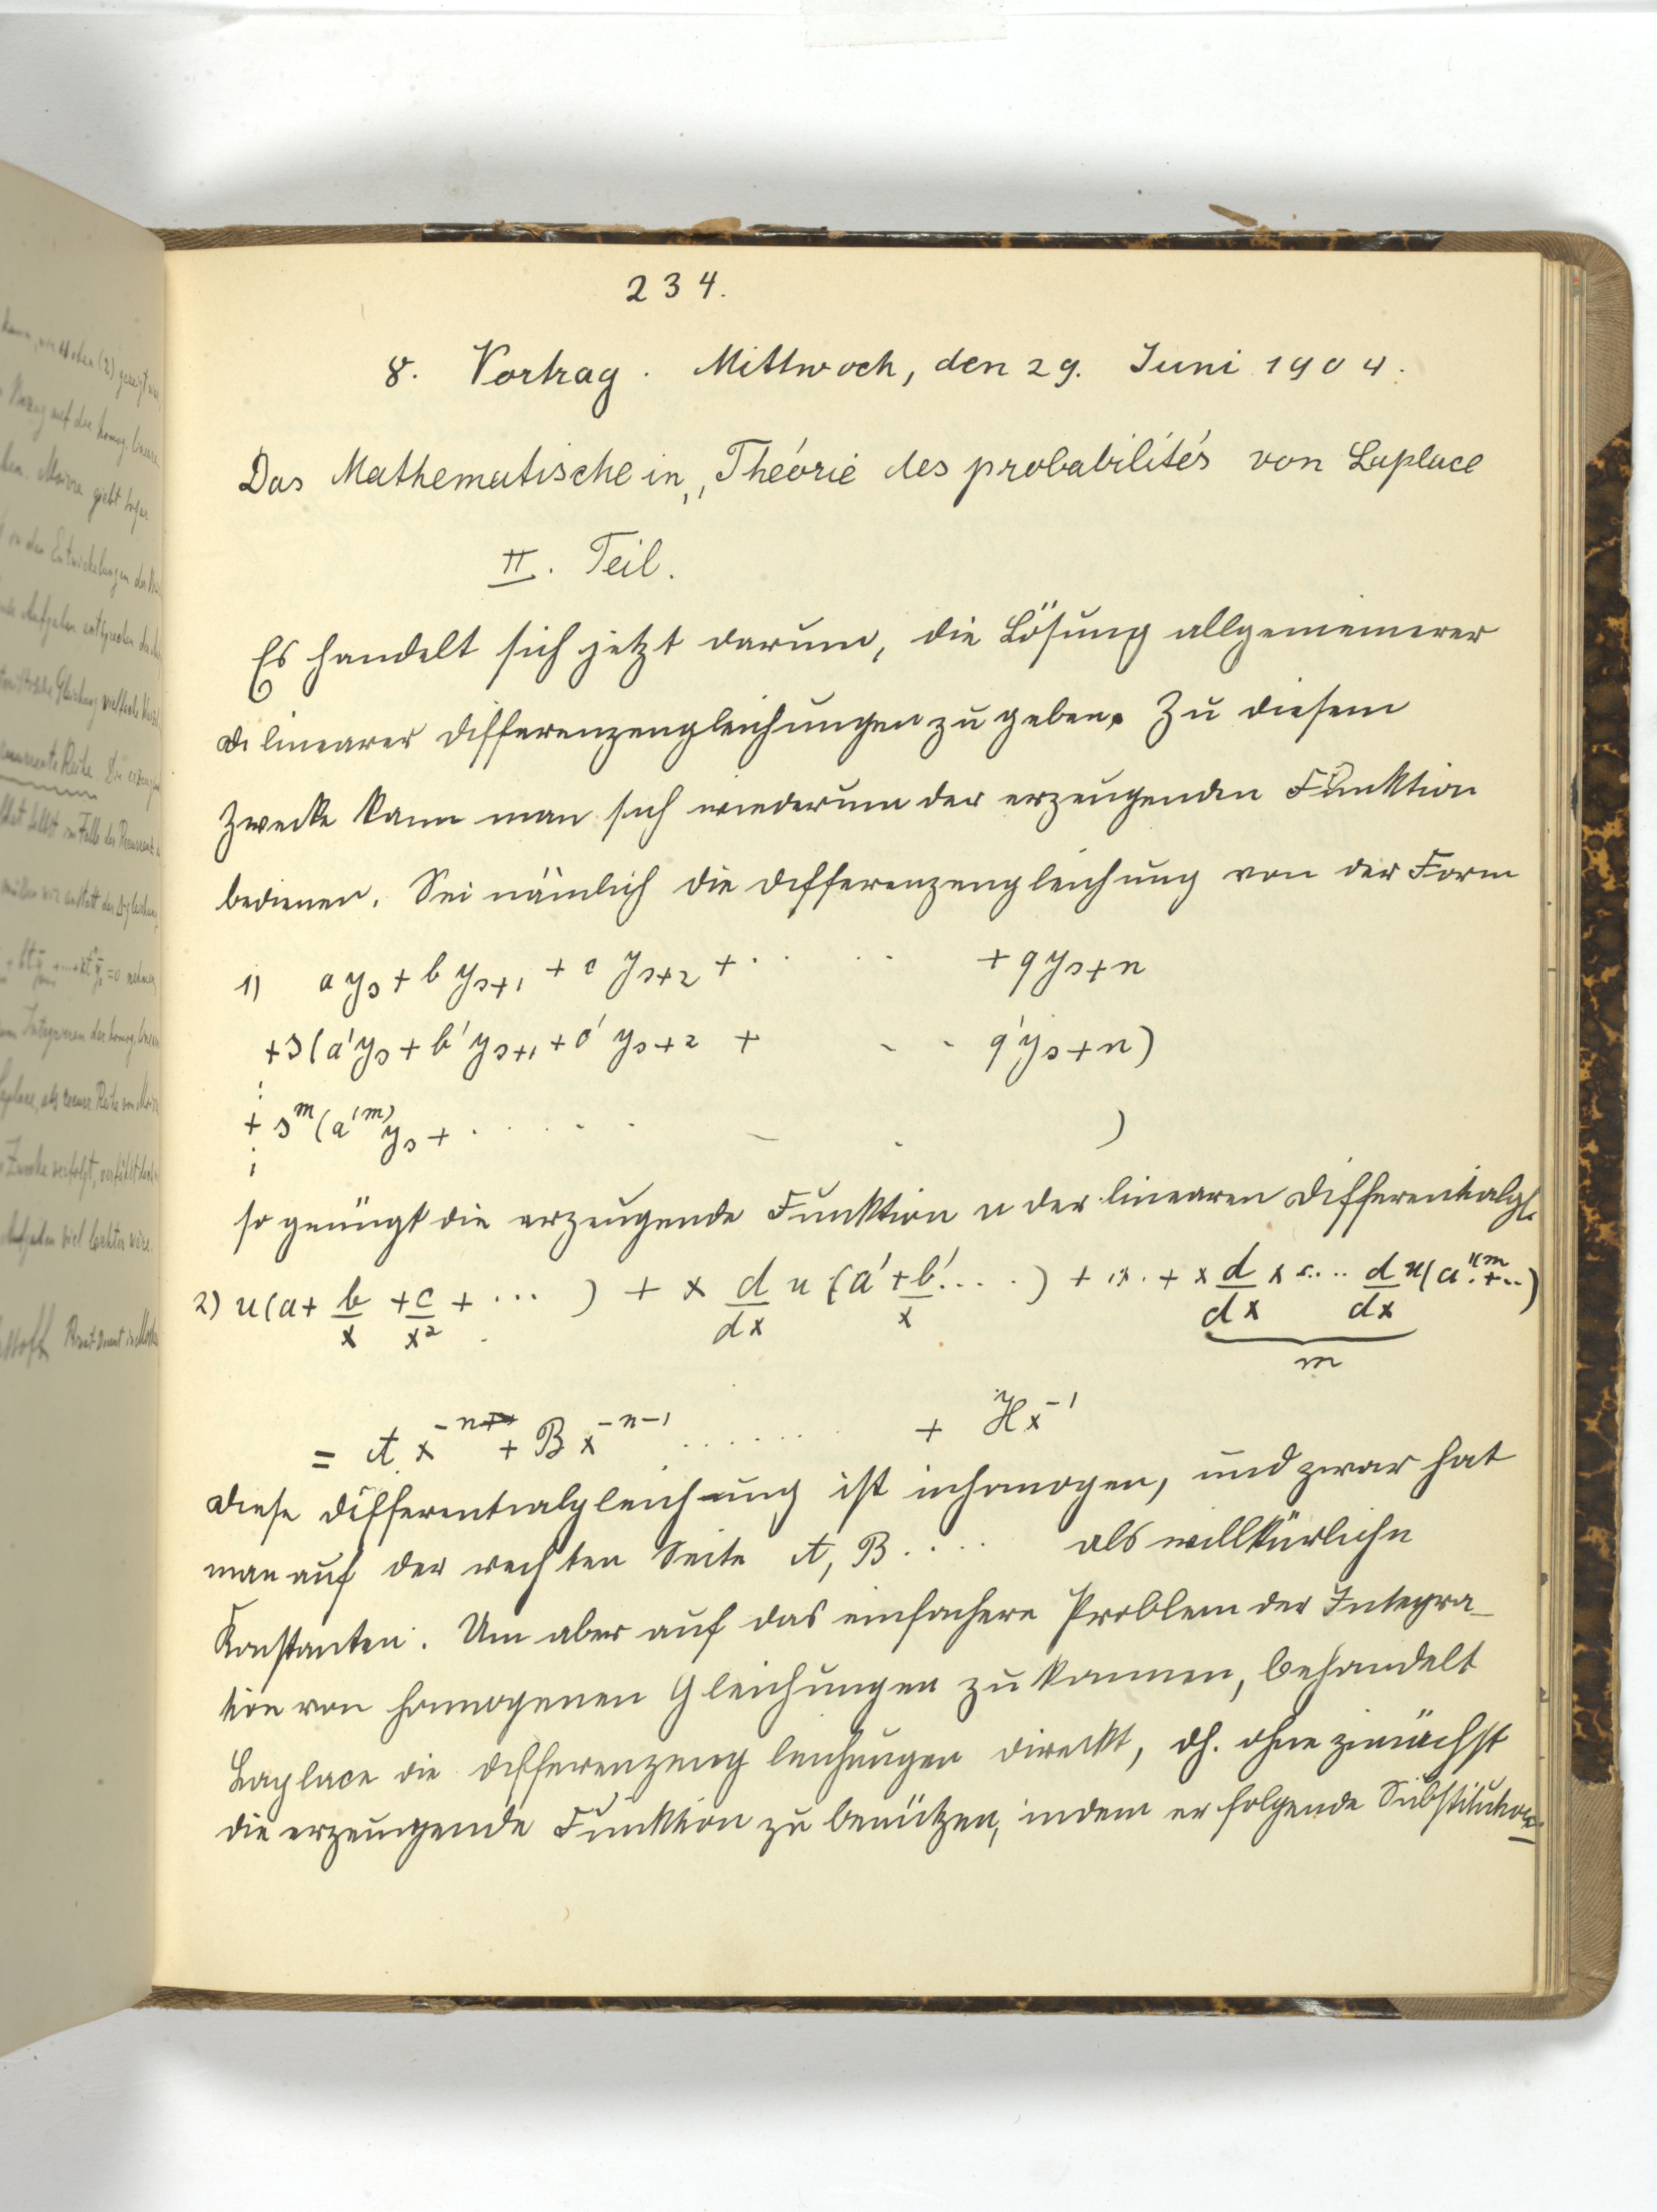 234.
8. Vortrag. Mittwoch, den 29. Juni 1904.
Das Mathematische in „Théorie des probabilités von Laplace
II. Teil.
Es handelt sich jetzt darum, die Lösung allgemeinerer
linearer Differenzengleichungen zu geben. Zu diesem
Zwecke kann man sich wiederum der erzeugenden Funktion
bedienen. Sei nämlich die Differenzengleichung von der Form
1) a y_s + b y_{s+1} + c y_{s+2} + . . . + q y_{s+n}
+ s (a' y_s + b' y_{s+1} + c' y_{s+2} + . . q' y_{s+n})
⋮
+ s^m (a^{(m)} y_s + . . . . . . . )
⋮
so genügt die erzeugende Funktion u der linearen Differentialgl.
2) u (a + b/x + c/x² + ... ) + x d/dx u (a' + b'/x ....) + ... + x d/dx x .... d/dx u (a^{(m)} + ...)
m
= A x^{-n} + B x^{-n-1} ....... + H x^{-1}
Diese Differentialgleichung ist inhomogen, und zwar hat
man auf der rechten Seite A, B .... als willkürliche
Konstanten. Um aber auf das einfachere Problem der Integra-
tion von homogenen Gleichungen zu kommen, behandelt
Laplace die Differenzengleichungen direkt, dh. ohne zunächst
die erzeugende Funktion zu benützen, indem er folgende Substitution